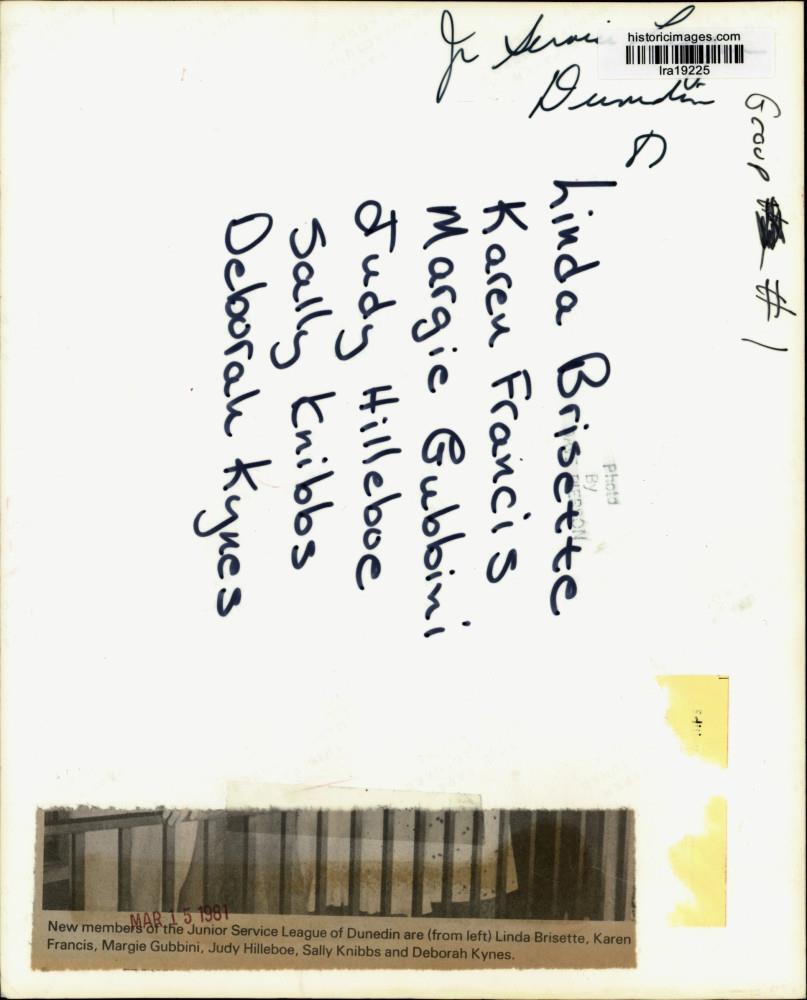 historicimages.com
lra19225
Jr Servi
Dunedin
Group # 1
Linda Brisette
Karen Francis
Margie Gubbini
Judy Hilleboe
Sally Knibbs
Deborah Kynes
Photo
By
MAR 15 1981
New members of the Junior Service League of Dunedin are (from left) Linda Brisette, Karen
Francis, Margie Gubbini, Judy Hilleboe, Sally Knibbs and Deborah Kynes.